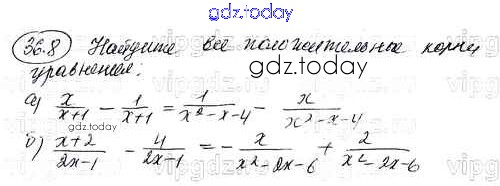 gdz.today
36.8 Найдите все положительные корни
уравнения:
gdz.today
а) x/(x+1) - 1/(x+1) = 1/(x²-x-4) - x/(x²-x-4)
б) (x+2)/(2x-1) - 4/(2x-1) = -x/(x²-2x-6) + 2/(x²-2x-6)